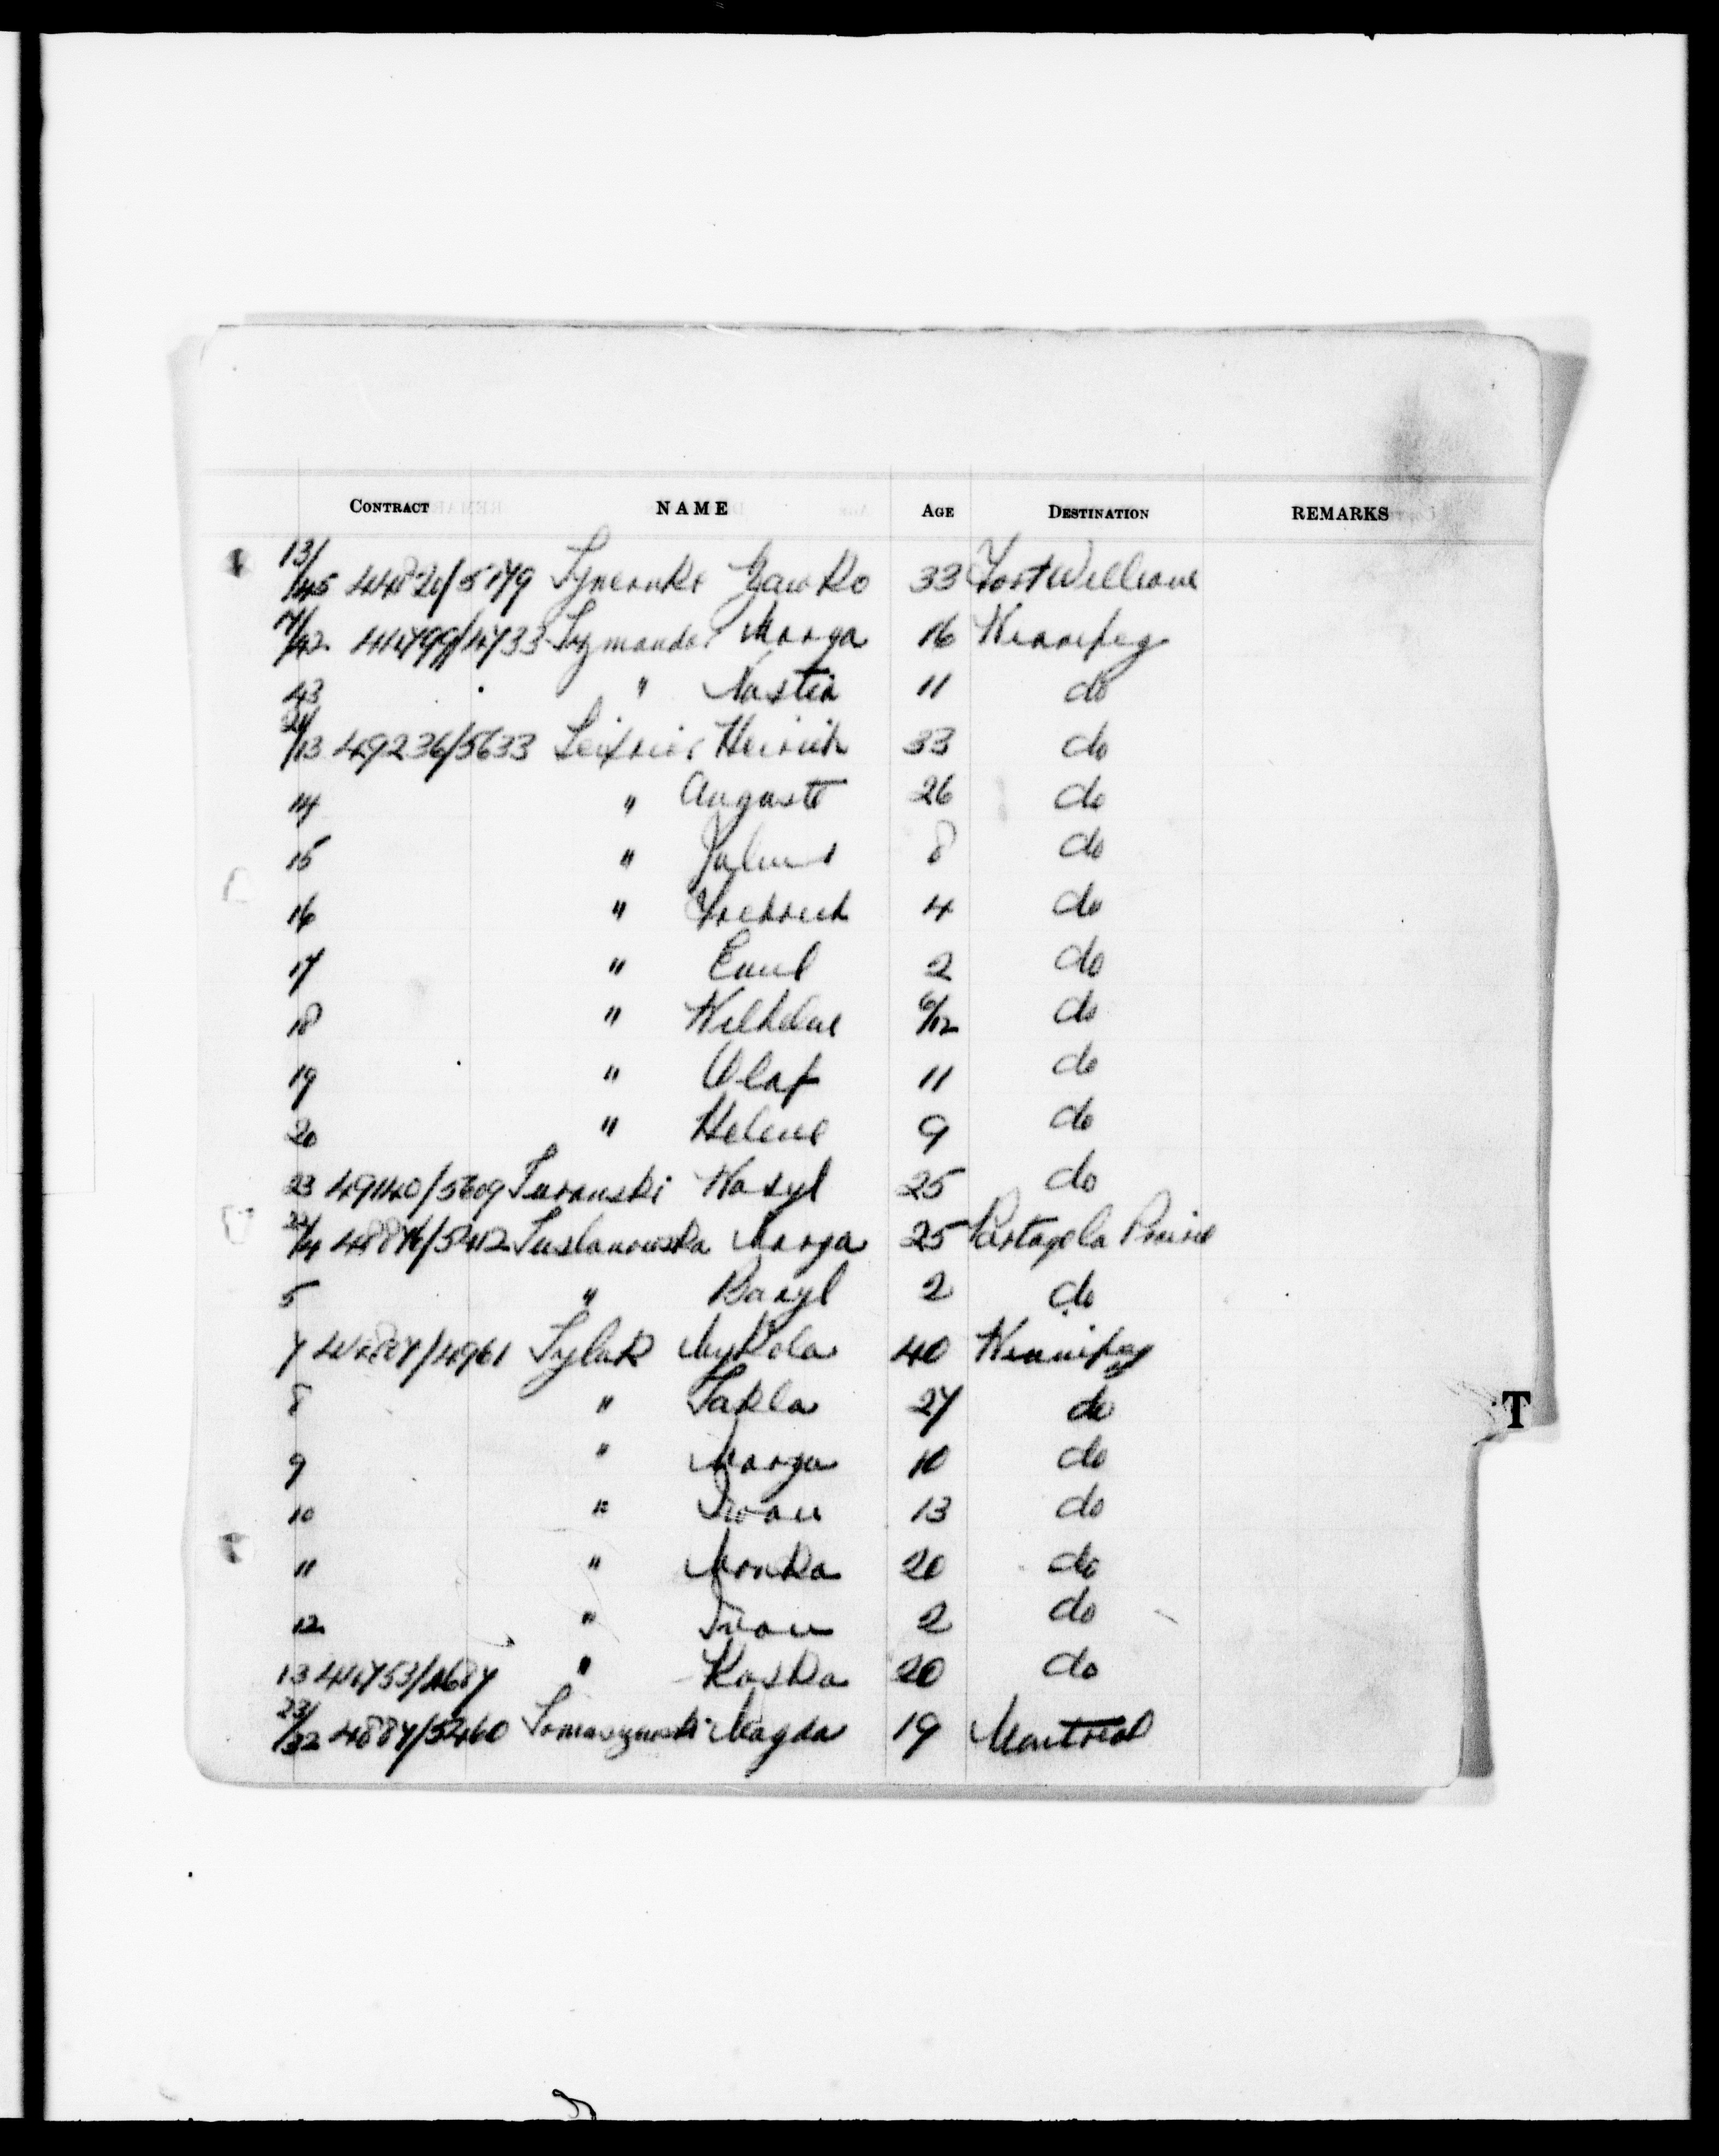 CONTRACT NAME AGE DESTINATION REMARKS
13/45 5179 33 Fort William
42 Marya 16 Winnipeg
43 " Nastia 11 do
21/13 49236/5633 Heinrich 33 do
14 " August 26 do
15 " Julius 8 do
16 " Friedrich 4 do
17 " Emil 2 do
18 " Wilhelm 6/12 do
19 " Olaf 11 do
20 " Helene 9 do
23 49140/5609 Turanski Wasyl 25 do
22/4 Tuslanowska Marya 25 Portage la Prairie
5 " Basyl 2 do
7 Tylak Mykola 40 Winnipeg
8 " Takla 27 do
9 " Marya 10 do
10 " Iwan 13 do
11 " 20 do
12 " Iwan 2 do
13 " Kaska 20 do
23/32 4887/5460 Magda 19 Montreal
T